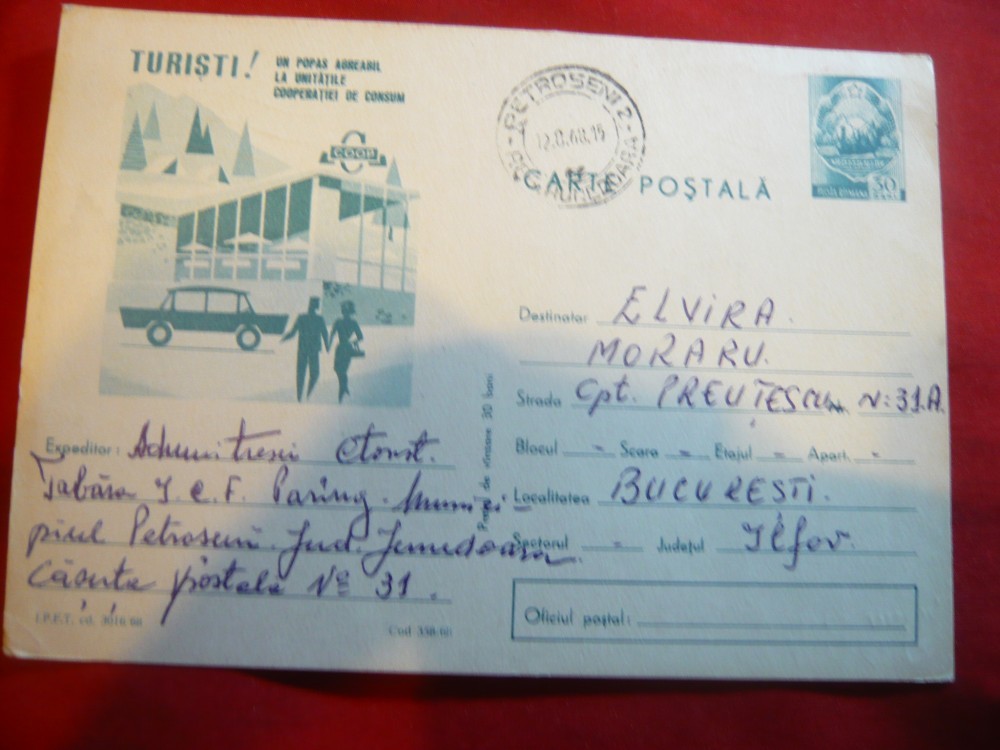 TURIȘTI! UN POPAS AGREABIL
LA UNITĂȚILE
COOPERAȚIEI DE CONSUM
COOP
PETROSENI 2
CARTE POȘTALĂ
POSTA ROMANA 30
Destinatar ELVIRA.
MORARU.
Strada Cpt. PREUȚESCU N: 31.A.
Blocul - Scara - Etajul - Apart. -
Localitatea BUCUREȘTI.
Sectorul - Județul Ilfov.
Oficiul poștal:
Prețul de vînzare 30 bani.
Expeditor:
Tabăra Paring. Munici-
piul Petroseni. Jud. Hunedoara.
Căsuta postala No 31.
I.P.E.T. cd. 3016/68
Cod 358/68